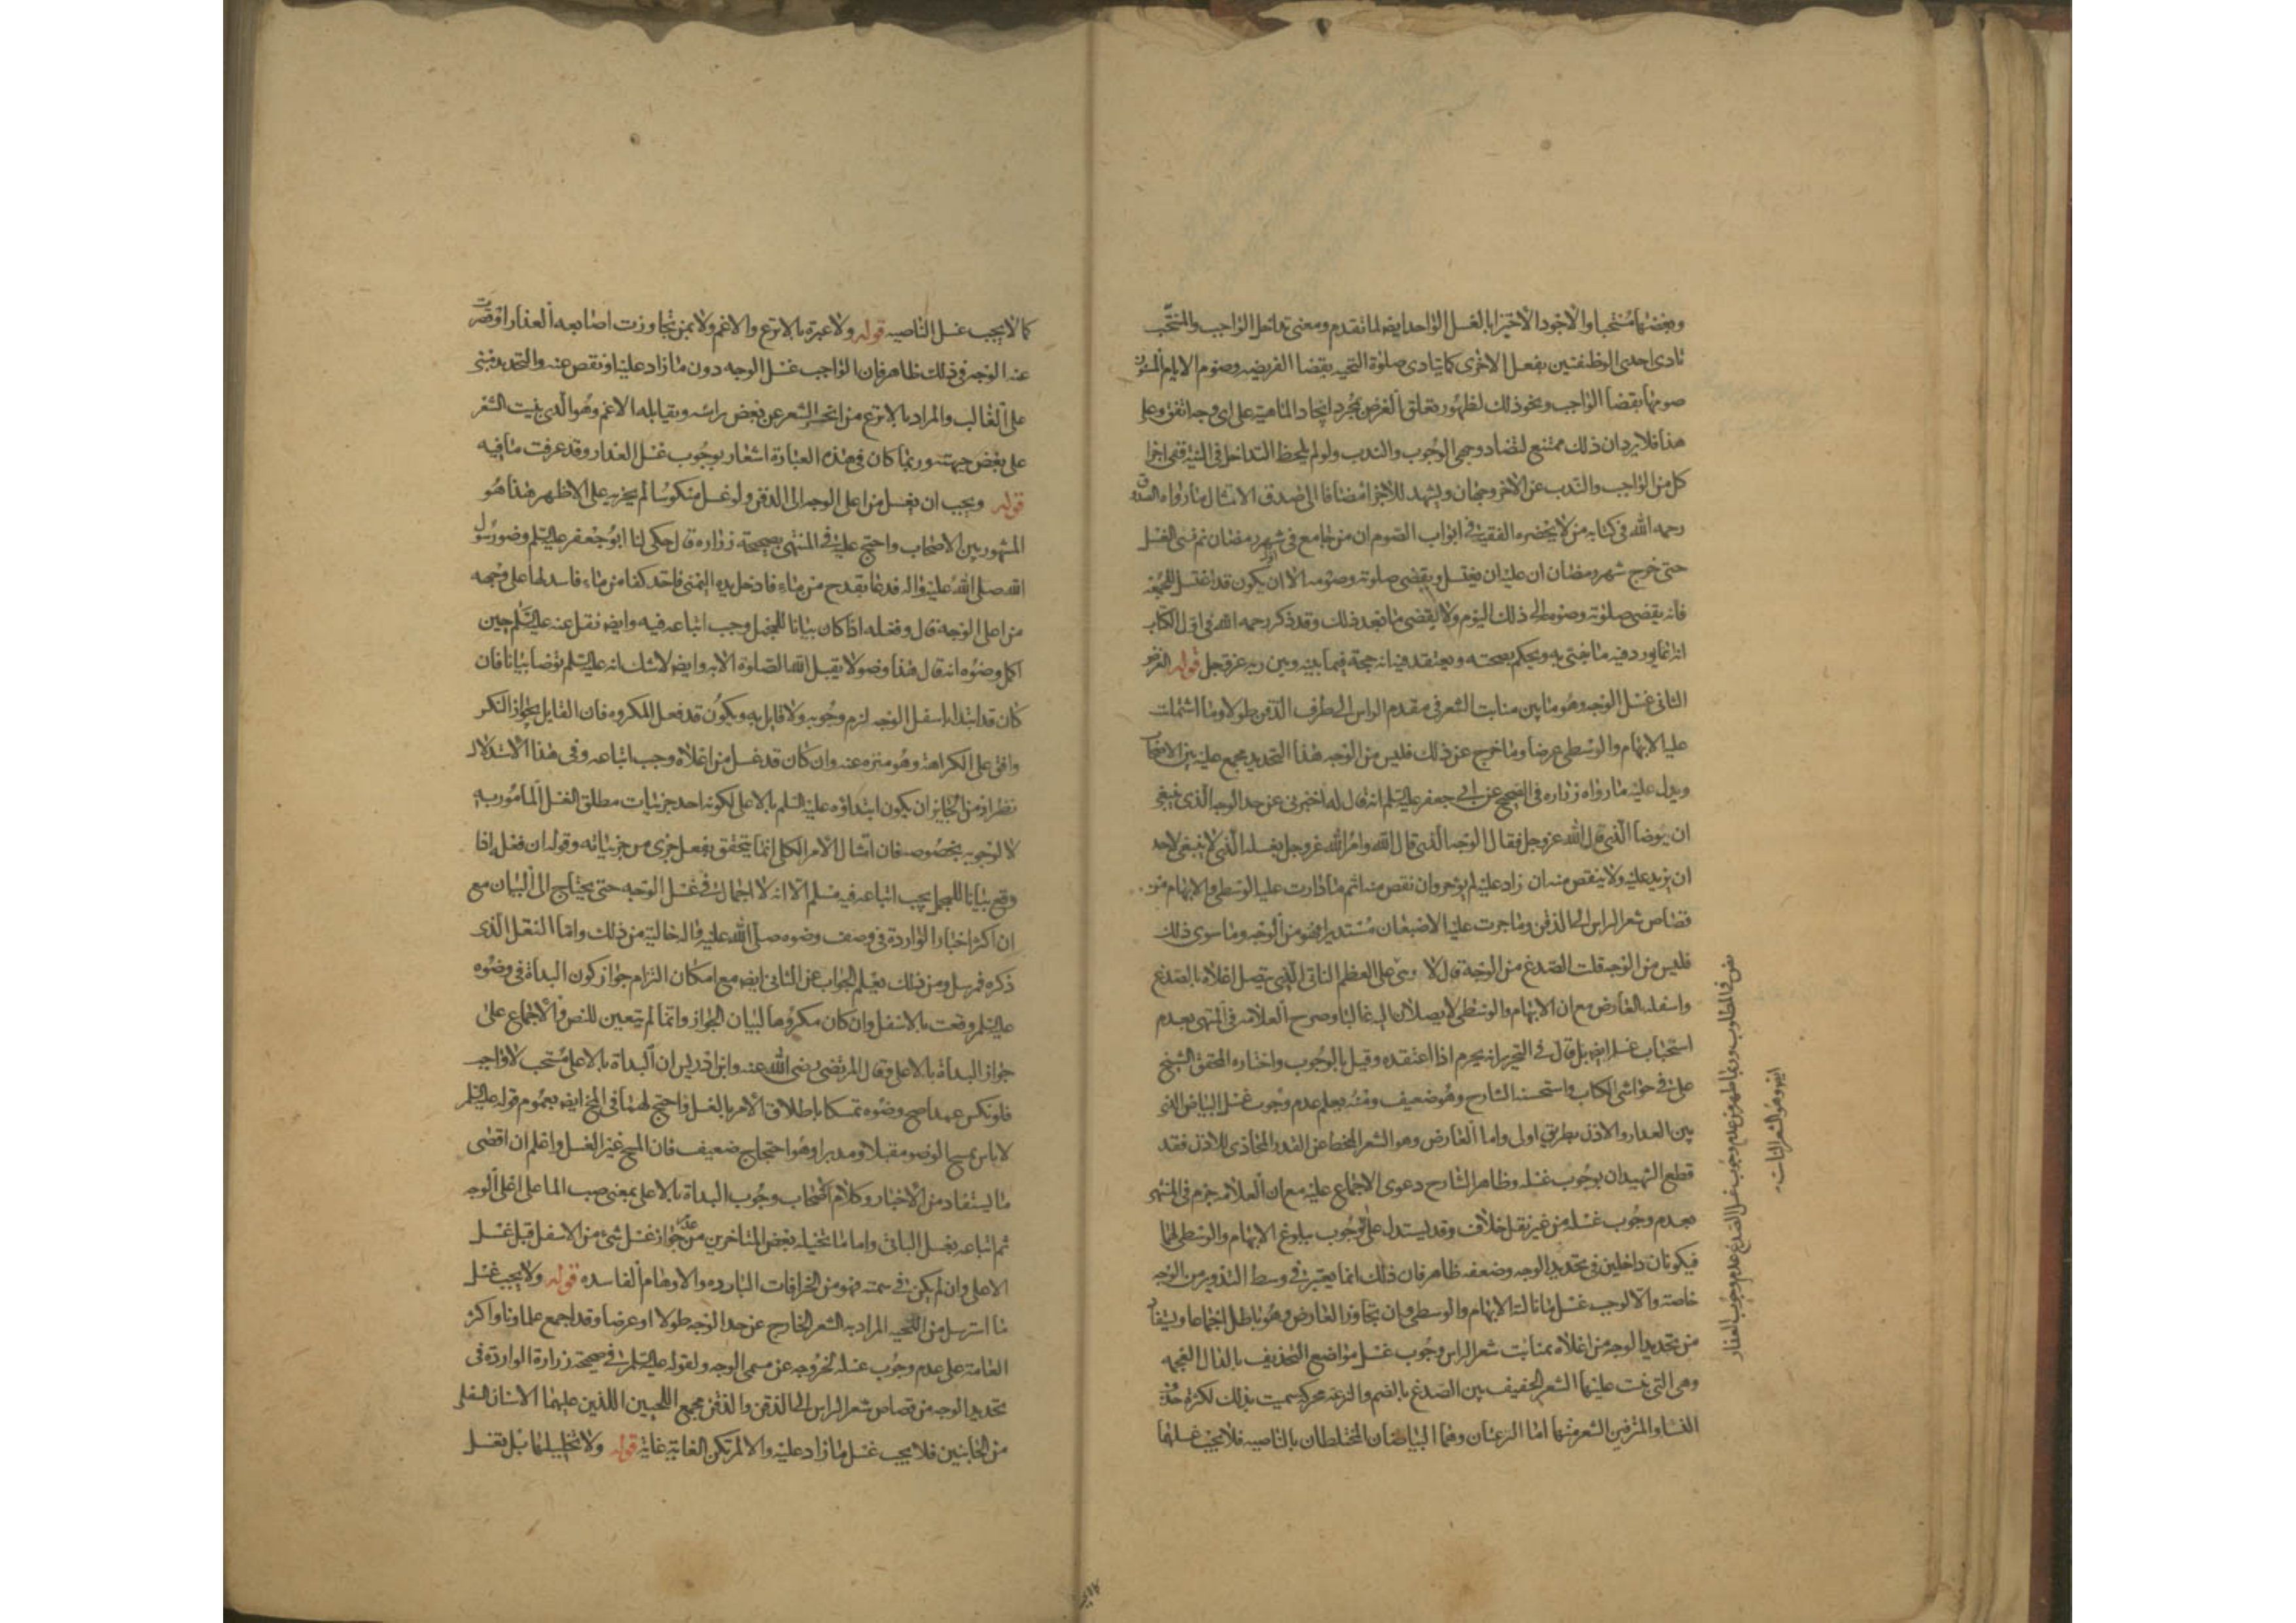 وبعضها مستحبا والاجود الاجتزا بالغسل الواحد ايضا لما تقدم ومعنى تداخل الواجب والمستحب
تادى احدى الوظيفتين بفعل الاخرى كما يتادى صلوة التحيه بقضا الفريضه وصوم الايام المسنون
صومها بقضا الواجب ونحو ذلك لظهور تعلق الغرض بمجرد ايجاد الماهية على اى وجه اتفق وعلى
هذا فلا يرد ان ذلك ممتنع لتضاد وجهى الوجوب والندب ولو لم يلحظ التداخل فى النية ففى اجزا
كل من الواجب والندب عن الاخر وجهان ويشهد للاجزا مضافا الى صدق الامتثال ما رواه الصدوق
رحمه الله فى كتابه من لا يحضره الفقيه فى ابواب الصوم ان من جامع فى اول شهر رمضان ثم نسى الغسل
حتى خرج شهر رمضان ان عليه ان يغتسل ويقضى صلوته وصومه الا ان يكون قد اغتسل للجمعة
فانه يقضى صلوته وصومه الى ذلك اليوم ولا يقضى ما بعد ذلك وقد ذكر رحمه الله فى اول الكتاب
انه انما يورد فيه ما يفتى به ويحكم بصحته ويعتقد فيه انه حجة فيما بينه وبين ربه عز وجل قوله الفرض
الثانى غسل الوجه وهو ما بين منابت الشعر فى مقدم الراس الى طرف الذقن طولا وما اشتملت
عليه الابهام والوسطى عرضا وما خرج عن ذلك فليس من الوجه هذا التحديد مجمع عليه بين الاصحاب
ويدل عليه ما رواه زراره فى الصحيح عن ابى جعفر عليه السلم انه قال له اخبرنى عن حد الوجه الذى ينبغى
ان يوضا الذى قال الله عز وجل فقال الوجه الذى قال الله وامر الله عز وجل بغسله الذى لا ينبغى لاحد
ان يزيد عليه ولا ينقص منه ان زاد عليه لم يؤجر وان نقص منه اثم ما دارت عليه الوسطى والابهام من
قصاص شعر الراس الى الذقن وما جرت عليه الاصبعان مستديرا فهو من الوجه وما سوى ذلك
فليس من الوجه قلت الصدغ من الوجه قال لا وهى على العظم الناتى الذى يتصل اعلاه بالصدغ
واسفله العارض مع ان الابهام والوسطى لا يصلان اليه غالبا وصرح العلامه فى المنتهى بعدم
استحباب غسله ايضا بل قال فى التحرير انه يحرم اذا اعتقده وقيل بالوجوب واختاره المحقق الشيخ
على فى حواشى الكتاب واستحسنه الشارح وهو ضعيف ومنه يعلم عدم وجوب غسل البياض الذى
بين العدار والاذن بطريق اولى واما العارض وهو الشعر المنحط عن القدر المحاذى للاذن فقد
قطع الشهيدان بوجوب غسله وظاهر الشارح دعوى الاجماع عليه مع ان العلامه جزم فى المنتهى
بعدم وجوب غسله من غير نقل خلاف وقد يستدل على الوجوب ببلوغ الابهام والوسطى لهما
فيكونان داخلين فى تحديد الوجه وضعفه ظاهر فان ذلك انما يعتبر فى وسط التدوير من الوجه
خاصة والا لوجب غسل ما نالته الابهام والوسطى وان تجاوز العارض وهو باطل اجماعا ويستفاد
من تحديد الوجه من اعلاه بمنابت شعر الراس وجوب غسل مواضع التحذيف بالذال المعجمه
وهى التى ينبت عليها الشعر الخفيف بين الصدغ بالضم والنزعه محركه سميت بذلك لكثرة حذف
النسا والمترفين الشعر منها اما النزعتان وهما البياضان المحيطان بالناصيه فلا يجب غسلهما
نص فى المطلوب وربما ظهر من عدم وجوب غسل الصدغ عدم وجوب غسل العذار
ايضا وهو الشعر النابت
كما لا يجب غسل الناصيه قوله ولا عبرة بالانزع والاغم ولا بمن تجاوزت اصابعه العذار او قصرت
عنه الوجه فى ذلك ظاهر فان الواجب غسل الوجه دون ما زاد عليه او نقص عنه والتحديد مبنى
على الغالب والمراد بالانزع من انحسر الشعر عن بعض راسه ويقابله الاغم وهو الذى ينبت الشعر
على بعض جبهته وربما كان فى هذه العبارة اشعار بوجوب غسل العذار وقد عرفت ما فيه
قوله ويجب ان يغسل من اعلى الوجه الى الذقن ولو غسل منكوسا لم يجزيه على الاظهر هذا هو
المشهور بين الاصحاب واحتج عليه فى المنتهى بصحيحة زراره قال حكى لنا ابو جعفر عليه السلم وضو رسول
الله صلى الله عليه واله فدعا بقدح من ماء فادخل يده اليمنى فاخذ كفا من ماء فاسدلها على وجهه
من اعلى الوجه قال وفعله اذا كان بيانا للمجمل وجب اتباعه فيه وايضا نقل عنه عليه السلم حين
اكمل وضوه انه قال هذا وضو لا يقبل الله الصلوة الا به وايضا لا شك انه عليه السلم توضا بيانا فان
كان قد ابتدا باسفل الوجه لزم وجوبه ولا قايل به ويكون قد فعل المكروه فان القايل بجواز النكر
وافق على الكراهة وهو منزه عنه وان كان قد غسل من اعلاه وجب اتباعه وفى هذا الاستدلال
نظر اذ من الجايز ان يكون ابتداؤه عليه السلم بالاعلى لكونه احد جزئيات مطلق الغسل المامور به
لا لوجوبه بخصوصه فان امتثال الامر الكلى انما يتحقق بفعل جزى من جزئياته وقوله ان فعله اذا
وقع بيانا للمجمل يجب اتباعه فيه مسلم الا انه لا اجمال فى غسل الوجه حتى يحتاج الى البيان مع
ان اكثر اخبار الواردة فى وصف وضوه صلى الله عليه واله خالية من ذلك واما النقل الذى
ذكره فمرسل ومن ذلك يعلم الجواب عن الثانى ايضا مع امكان التزام جواز كون البداة فى وضوه
عليه السلم وقعت بالاسفل وان كان مكروها لبيان الجواز وانما لم يتعين للنص والاجماع على
جواز البداة بالاعلى وقال المرتضى رضى الله عنه وابن ادريس ان البداة بالاعلى مستحب لا واجب
فلو نكس عمدا صح وضوه تمسكا باطلاق الامر بالغسل واحتج لهما فى المخ ايضا بعموم قوله عليه السلم
لا باس بمسح الوضو مقبلا ومدبرا وهو احتجاج ضعيف فان المسح غير الغسل واعلم ان اقصى
ما يستفاد من الاخبار وكلام الاصحاب وجوب البداة بالاعلى بمعنى صب الما على اعلى الوجه
ثم اتباعه بغسل الباقى واما ما تخيله بعض المتاخرين من عدم جواز غسل شىء من الاسفل قبل غسل
الاعلى وان لم يكن فى سمته فهو من الخرافات البارده والاوهام الفاسده قوله ولا يجب غسل
ما استرسل من اللحيه المراد به الشعر الخارج عن حد الوجه طولا او عرضا وقد اجمع علماونا واكثر
العامة على عدم وجوب غسله لخروجه عن مسمى الوجه ولقوله عليه السلم فى صحيحة زرارة الواردة فى
تحديد الوجه من قصاص شعر الراس الى الذقن والذقن مجمع اللحيين اللذين عليهما الاسنان السفلى
من الجانبين فلا يجب غسل ما زاد عليه والا لم تكن الغاية غاية قوله ولا تخليلها بل يغسل